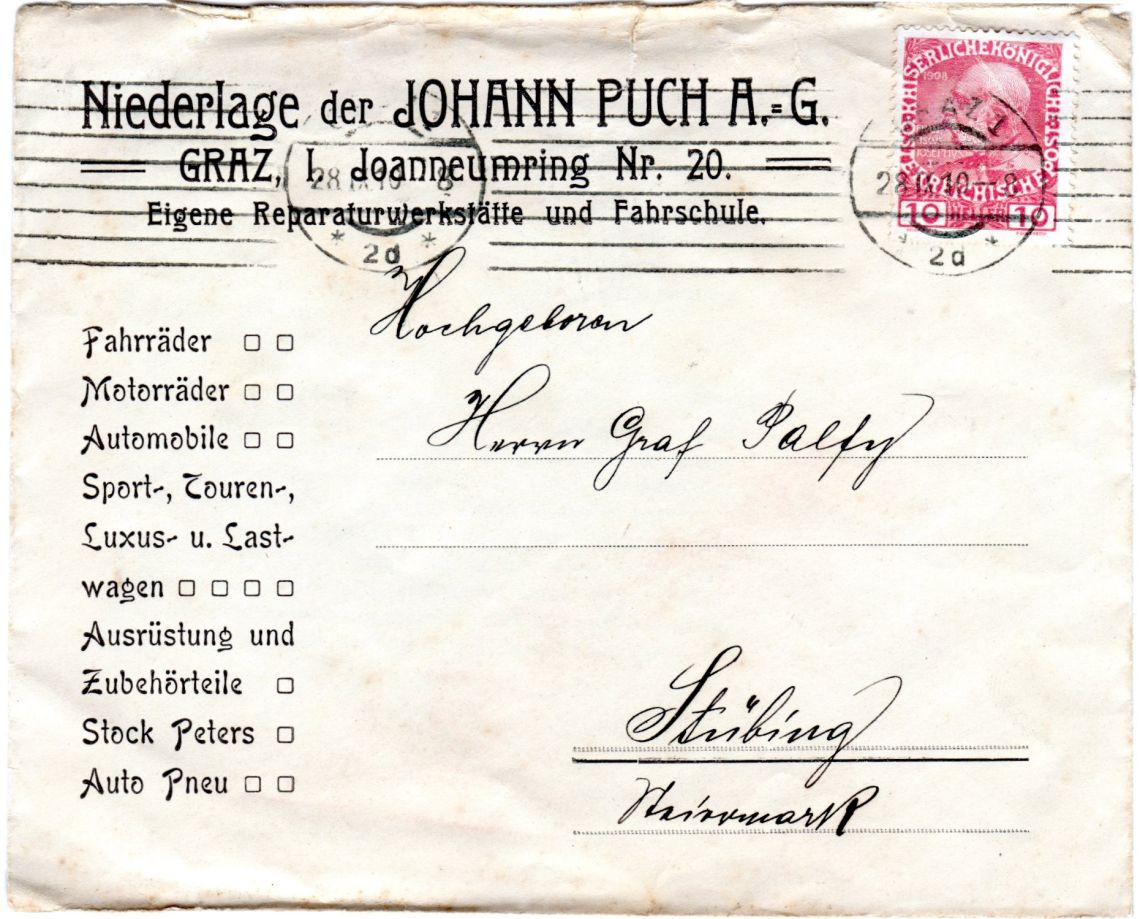 Niederlage der JOHANN PUCH A.=G.
GRAZ, I. Joanneumring Nr. 20.
Eigene Reparaturwerkstätte und Fahrschule.
KAISERLICHE KÖNIGLICHE ÖSTERREICHISCHE POST
1908
10 HELLER 10
28 IX 10 - 8
* 2d *
GRAZ 1
28 IX 10 - 8
* 2d *
Hochgeboren
Herrn Graf Palfy
Stübing
Steiermark
Fahrräder
Motorräder
Automobile
Sport-, Touren-,
Luxus- u. Last-
wagen
Ausrüstung und
Zubehörteile
Stock Peters
Auto Pneu